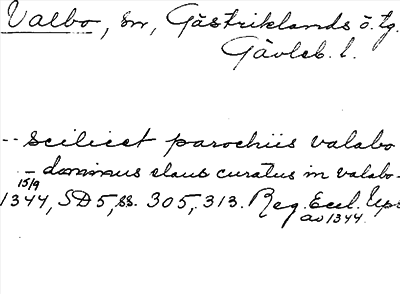 Valbo, sn, Gästriklands ö. tg.
Gävleb. l.
-- scilicet parochiis valabo
- dominus olaus curatus in valabo -
15/9
1344, SD 5, ss. 305, 313. Reg. Eccl. Ups.
av 1344.